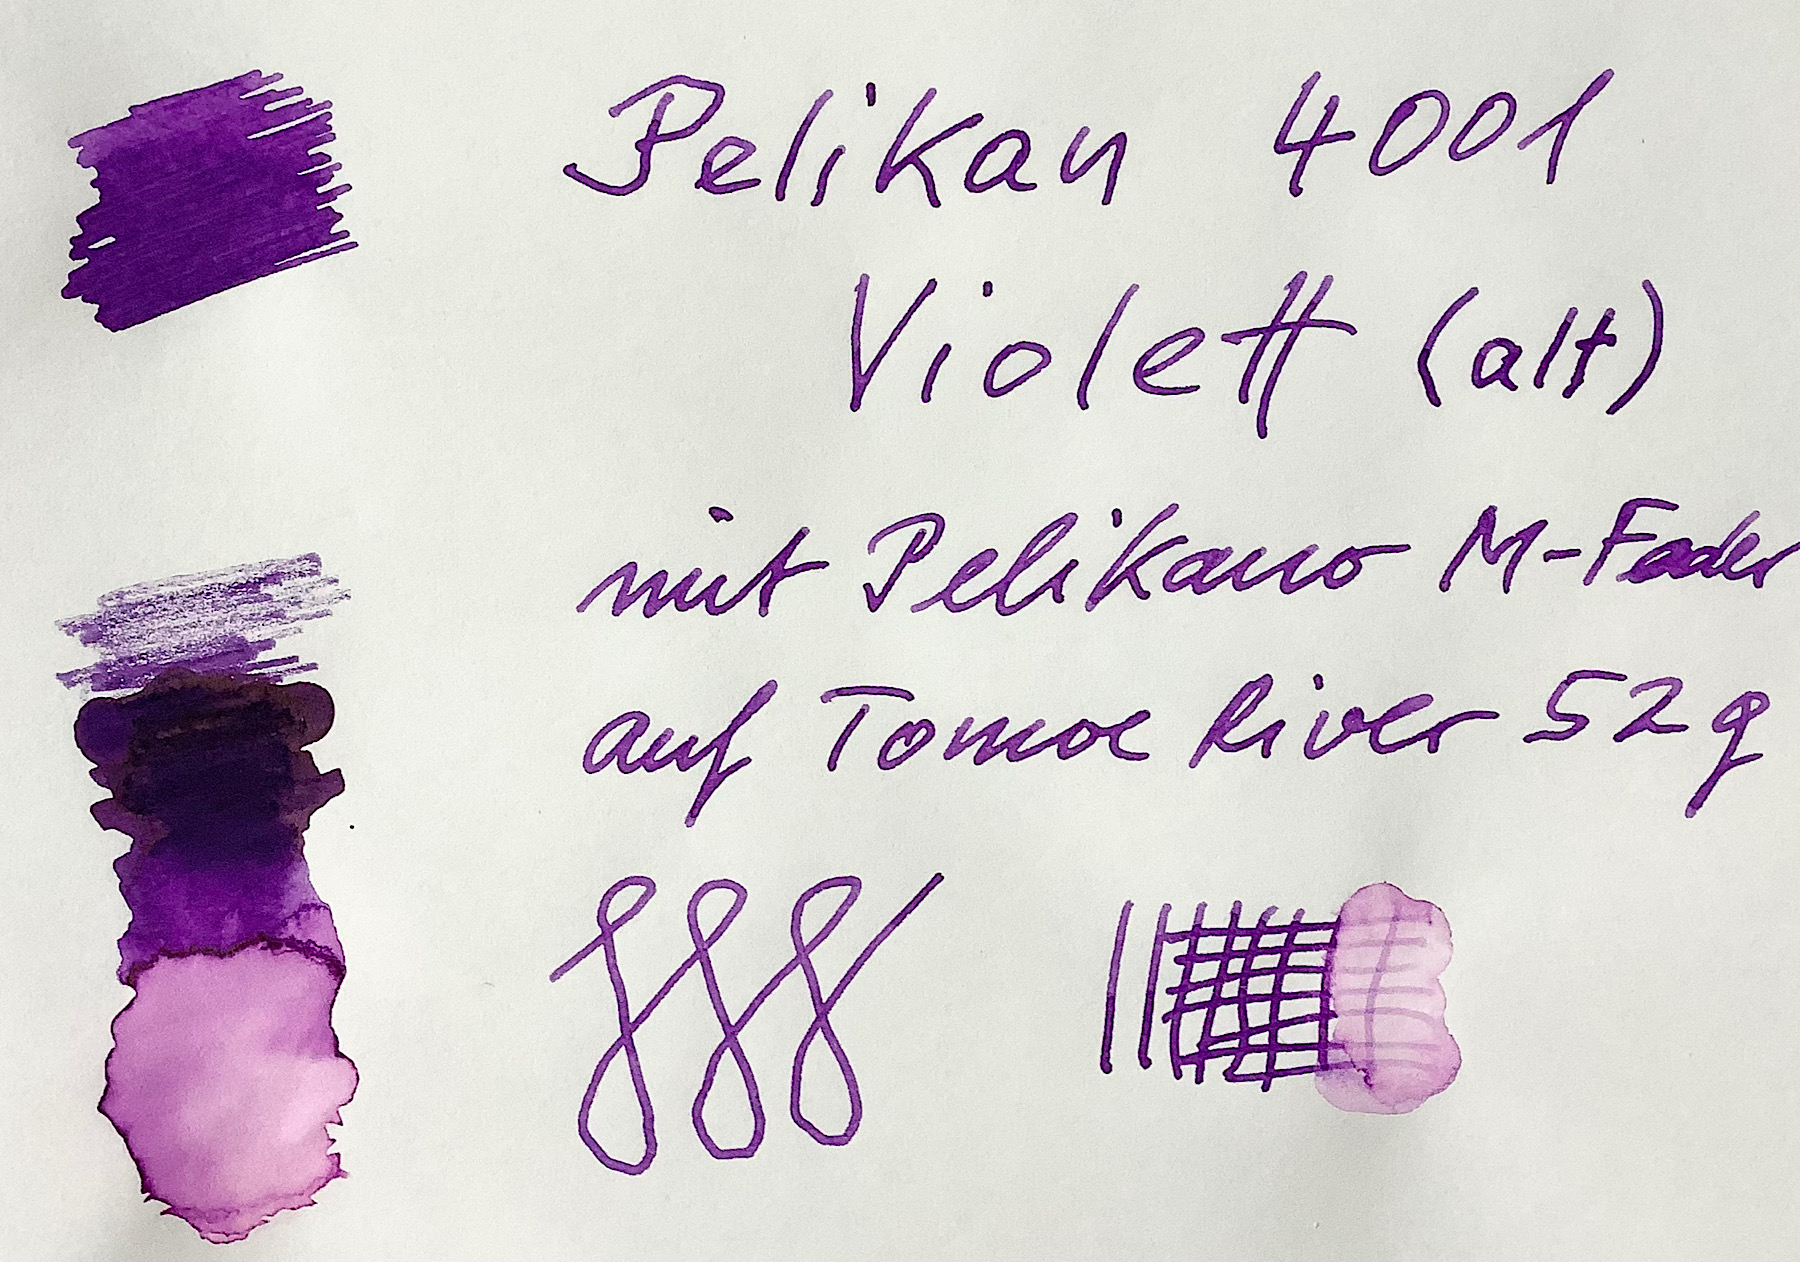 Pelikan 4001
Violett (alt)
mit Pelikano M-Feder
auf Tomoe River 52g